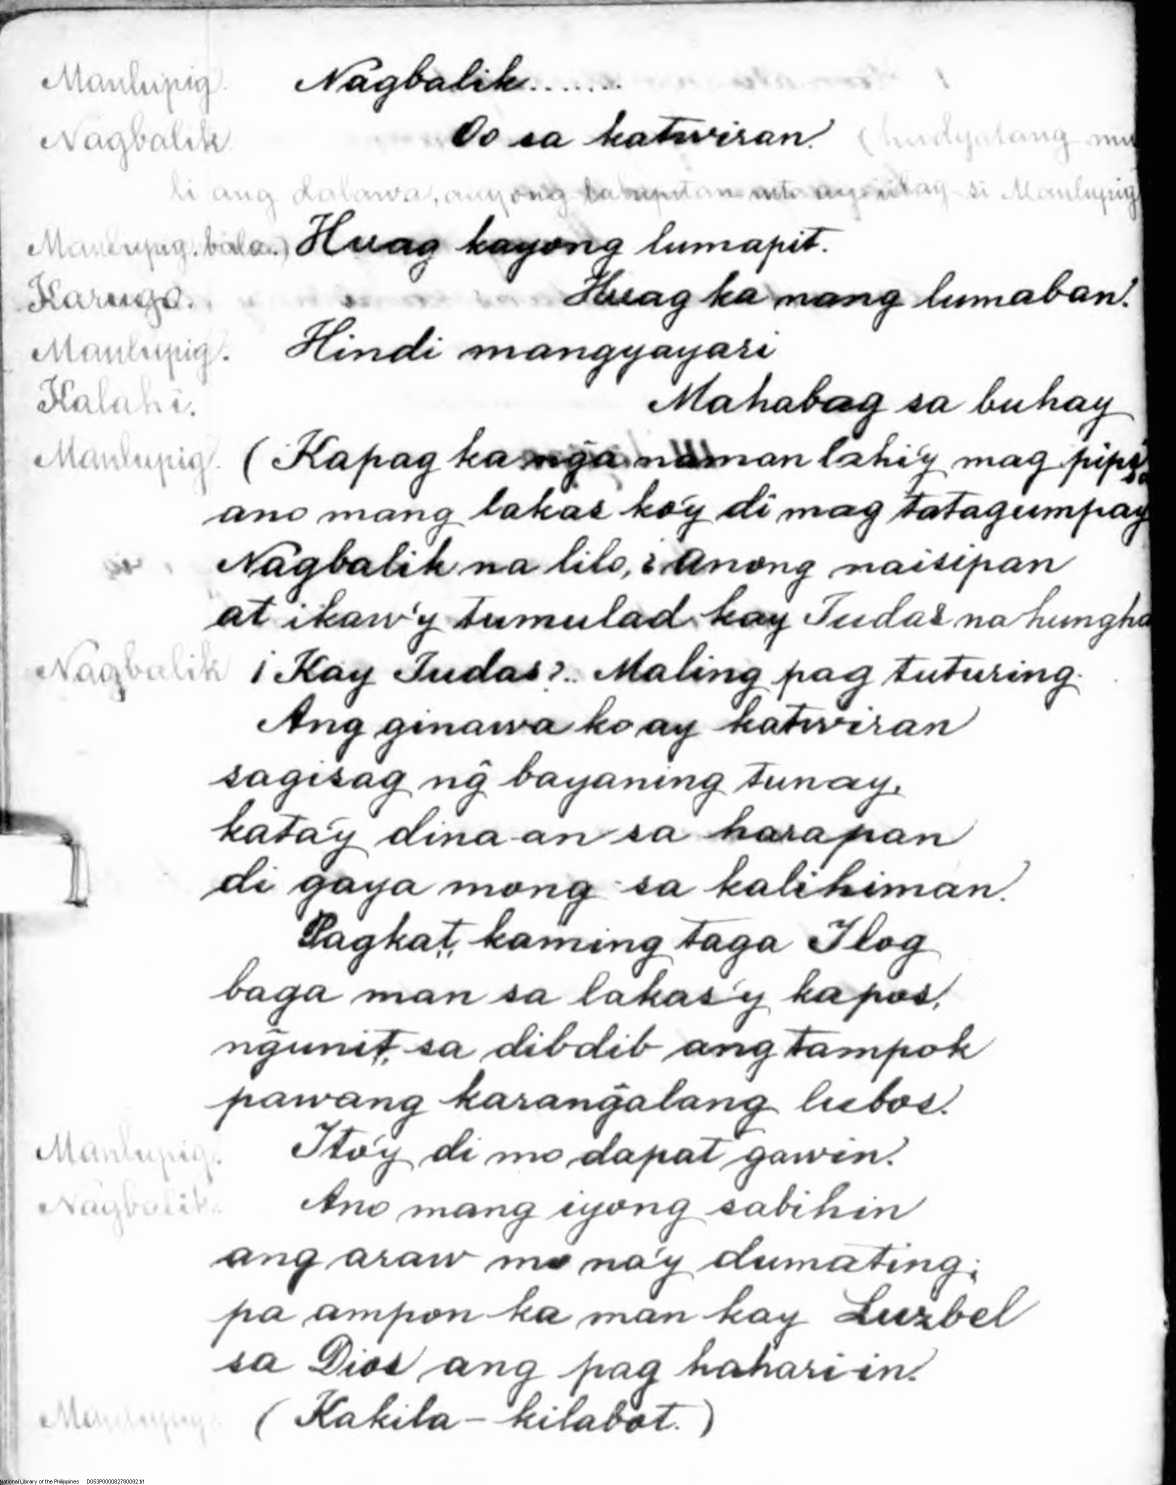 Manlupig. Nagbalik.......
Nagbalik Oo sa katwiran. (hudyatang mu
li ang dalawa, anyong si Manlupig
Manlupig. bala.) Huag kayong lumapit.
Karugo. Huag ka nang lumaban.
Manlupig. Hindi mangyayari
Kalahi. Mahabag sa buhay
Manlupig. (Kapag ka ng̃a naman lahi'y mag pipi
ano mang lakas ko'y di mag tatagumpay
Nagbalik na lilo, ¿Anong naisipan
at ikaw'y tumulad kay Judas na hungha
Nagbalik ¡Kay Judas?.. Maling pag tuturing.
Ang ginawa ko ay katwiran
sagisag ng̃ bayaning tunay,
kata'y dina-an sa harapan
di gaya mong sa kalihiman.
Pagkat, kaming taga Ilog
baga man sa lakas'y kapos,
ng̃unit, sa dibdib ang tampok
pawang karang̃alang lubos.
Manlupig. Ito'y di mo dapat gawin.
Nagbalik. Ano mang iyong sabihin
ang araw mo na'y dumating;
pa ampon ka man kay Luzbel
sa Dios ang pag hahari-in.
Manlupig. (Kakila-kilabot.)
National Library of the Philippines